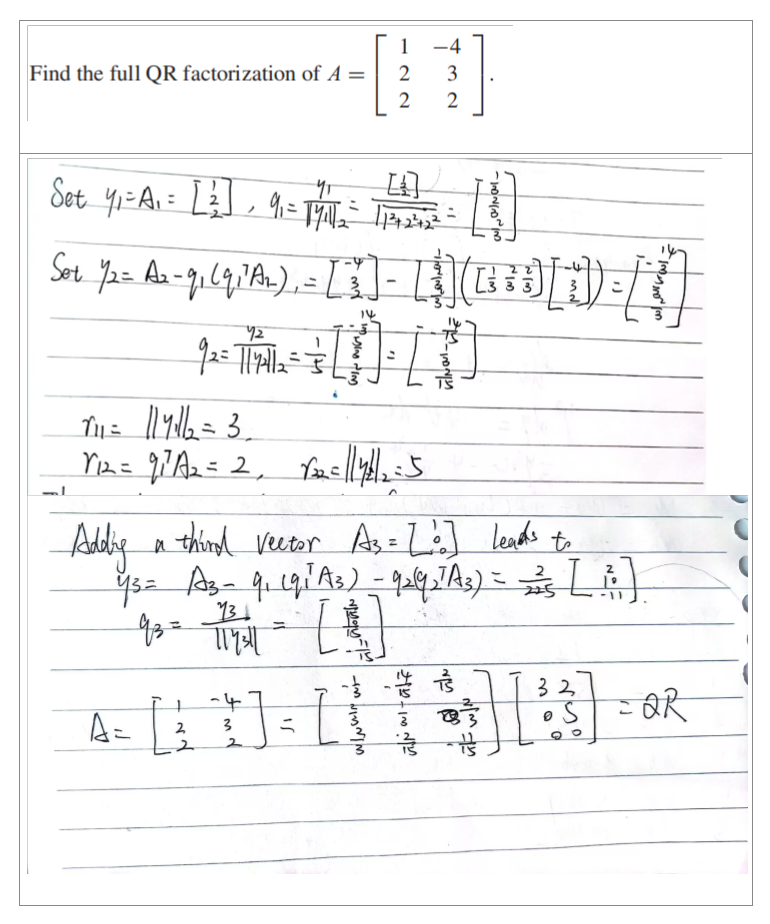 Find the full QR factorization of A = [1 -4; 2 3; 2 2].
Set y₁=A₁=[1; 2; 2], q₁=y₁/||y₁||₂=[1; 2; 2]/√(1²+2²+2²)=[1/3; 2/3; 2/3]
Set y₂=A₂-q₁(q₁ᵀA₂),=[-4; 3; 2]-[1/3; 2/3; 2/3]([1/3 2/3 2/3][-4; 3; 2])=[-14/3; 5/3; 2/3]
q₂=y₂/||y₂||₂=1/5[-14/3; 5/3; 2/3]=[-14/15; 1/3; 2/15]
r₁₁=||y₁||₂=3.
r₁₂=q₁ᵀA₂=2, r₂₂=||y₂||₂=5
Adding a third vector A₃=[1; 0; 0] leads to
y₃= A₃-q₁(q₁ᵀA₃)-q₂(q₂ᵀA₃)=2/225[2; 10; -11].
q₃=y₃/||y₃||=[2/15; 10/15; -11/15]
A=[1 -4; 2 3; 2 2]=[-1/3 -14/15 2/15; 2/3 1/3 2/3; 2/3 2/15 -11/15][3 2; 0 5; 0 0]=QR